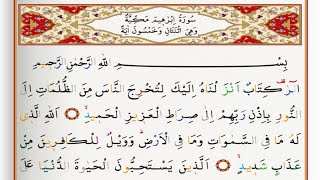 سُورَةُ اِبْرٰهِيمَ مَكِّيَّةٌ
وَهِيَ اثْنَتَانِ وَخَمْسُونَ اٰيَةً
بِسْــــــمِ اللّٰهِ الرَّحْمٰنِ الرَّحِيمِ
الٓرٰ كِتَابٌ اَنْزَلْنَاهُ اِلَيْكَ لِتُخْرِجَ النَّاسَ مِنَ الظُّلُمَاتِ اِلَى
النُّورِ بِاِذْنِ رَبِّهِمْ اِلٰى صِرَاطِ الْعَزِيزِ الْحَمِيدِ ۞ اَللّٰهِ الَّذِى
لَهُ مَا فِى السَّمٰوَاتِ وَمَا فِى الْاَرْضِ وَوَيْلٌ لِلْكَافِرِينَ مِنْ
عَذَابٍ شَدِيدٍ ۞ اَلَّذِينَ يَسْتَحِبُّونَ الْحَيٰوةَ الدُّنْيَا عَلَى